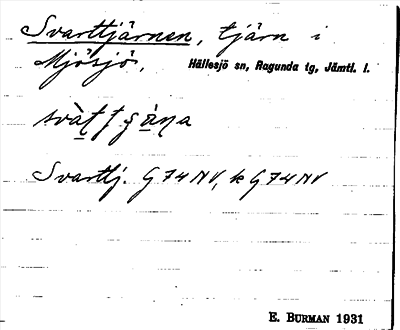 Svarttjärnen, tjärn i
Mjösjö, Hällesjö sn, Ragunda tg, Jämtl. l.
Svarttj. G74NV, k G74NV
E. BURMAN 1931